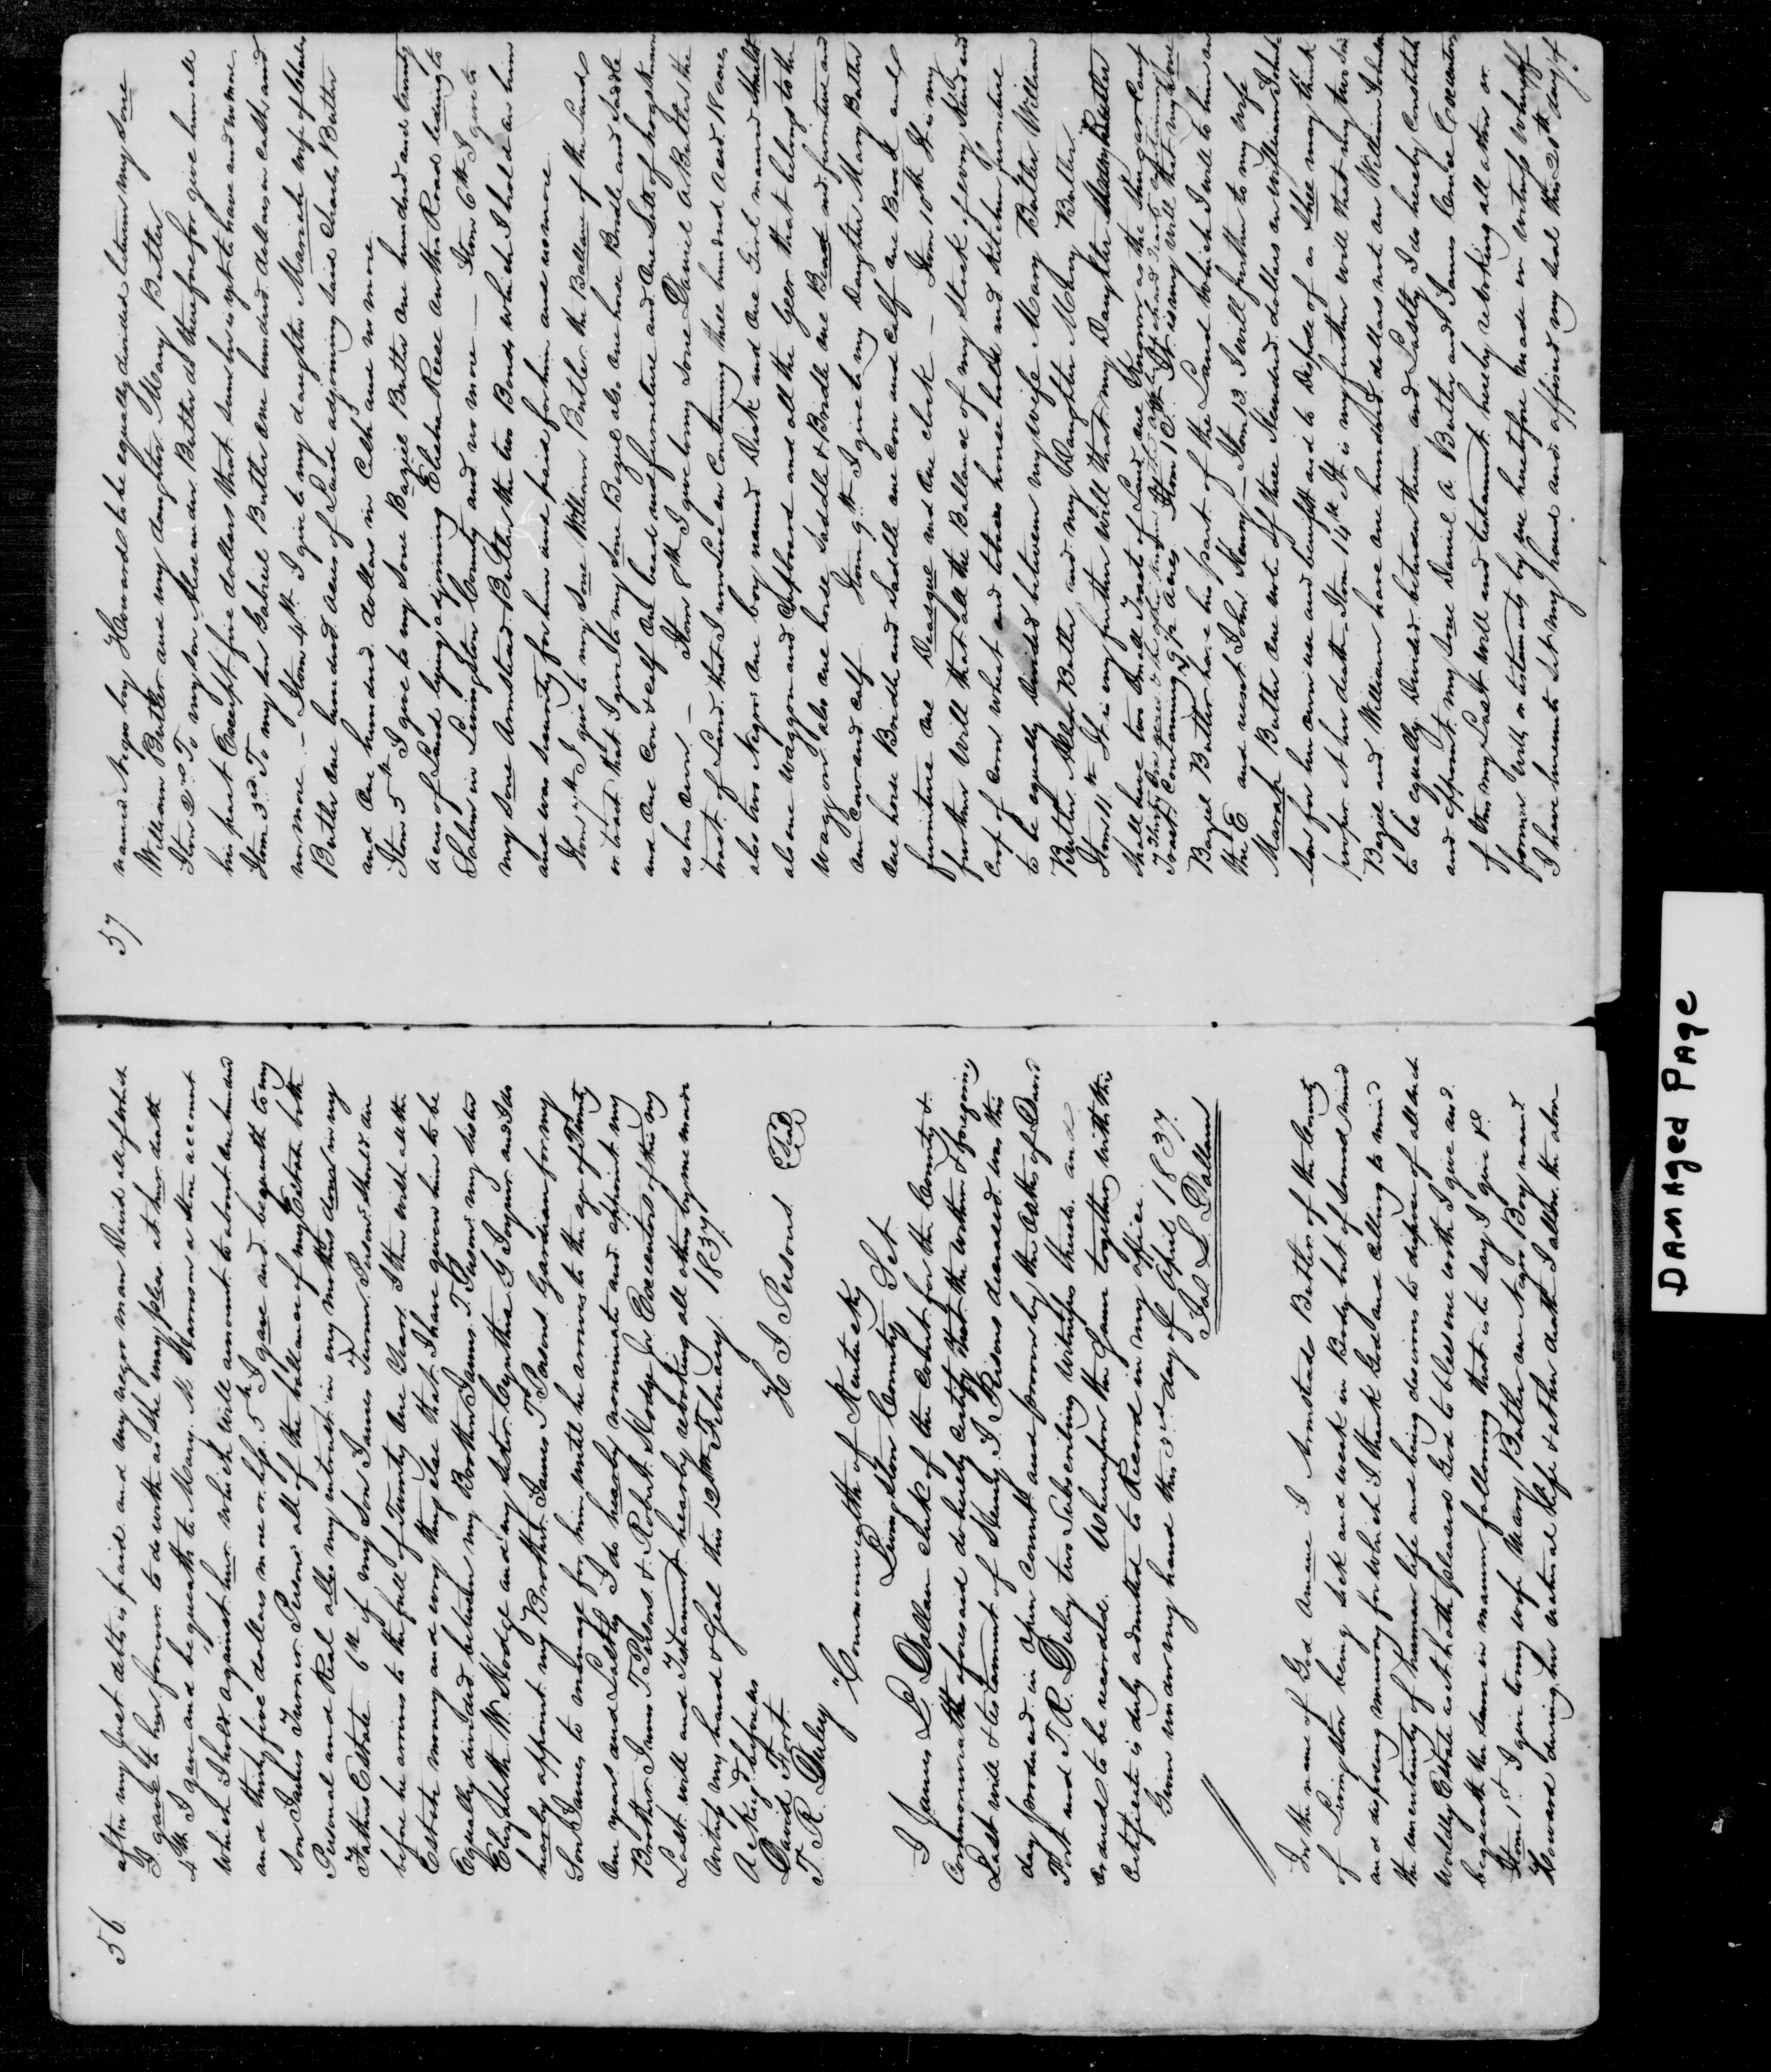 56
after my Just debts is paid and my negro man David all of which
I gave to her forever to do with as she may pleas at her death
4th I gave and bequeath to Mary. M. Harmon a Store account
which I hold against her which will amount to about one hundred
and thirty five dollars more or less. 5th I gave and bequeath to my
Son James Turner Persons all of the ballance of my Estate both
Personal and Real allso my intrust in my mothers dower in my
Fathers Estate 6th if my Son James Turner Persons Should die
before he arives to the full of Twenty One Years I then wish all the
Estate money and every thing else that I have given him to be
Equally divided between my Brother James T Persons my sister
Elizabeth W. Hodge and my sister Cynthia G Joyner and I do
hearby appoint my Brother James T Persons Gardian for my
Son James to manage for him until he arrives to the age of Twenty
One years and Lastly I do hearby nominate and appoint my
Brother James T Persons & Robert Hodge for Executors of this my
Last will and Testament hearby revoking all others by me made
witness my hand & Seal this 12th February 1837
Ackngd before us H. J. Persons Seal
David Fort
T. R. Duley
Commonwealth of Kentucky
Livingston County Sct
I James L Dallam Clerk of the Court for the County &
Commonwealth aforesaid do hereby certify that the within & foregoing
Last will & testament of Henry J. Persons deceased was this
day produced in open Court and proven by the Oaths of David
Fort and T. R. Duley two Subscribing Witnesses thereto and
ordered to be recorded. Whereupon the Same together with this
Certificate is duly admitted to Record in my office.
Given under my hand this 3rd day of April 1837.
Jas L. Dallam
In the name of God Amen I Armstead Butler of the County
of Livingston being sick and weak in Body but of Sound mind
and disposing memory for which I thank God and calling to mind
the uncertainty of human life and being desirous to dispose of all such
Worldly Estate as it hath pleased God to bless me with I give and
bequeath the same in manner following that is to say I give 1st
Item 1st I give to my wife Mary Butler one Negro Boy named
Howard during her natural life & at her death I allow the above
57
named Negro boy Howard to be equally divided between my Sone
William Butler and my daughter Mary Butler
Item 2nd To my son Butler as therefore for give him all
his part Except five dollars that sum he is yet to have and no more
Item 3rd To my son Gabriel Butler one hundred dollars in cash and
no more — Item 4th I give to my daughter Mariah wife of Charles
Butler one hundred acres of Land adjoining said Charles Butler
and One hundred dollars in Cash and no more
Item 5th I give to my Sone Baziel Butler one hundred and twenty
acres of Land lying adjoining Elisha Reed on the Road leading to
Salem in Livingston County and no more — Item 6th I give to
my Sone Armstead Butler the two Bonds which I hold on him
and was Security for him and paid for him and no more
Item 7th I give to my Sone William Butler the Ballan of the Land
or tract that I give to my Sone Baziel also one horse Bridle and Saddle
and One Cow & Calf One bead and furniture and One Sett of hogs
as his own — Item 8th I give to my Sone Daniel A Butler the
tract of Land that I now live on Containing three hundred Acres
also two Negros one boy named Dick and one Girl named
also one Waggon and Cupboard and all the Geer that belongs to the
waggon also one horse Saddle & Bridle one Bead and furniture and
one Cow and calf Item 9th I give to my Daughter Mary Butler
one horse Bridle and Saddle one cow and calf one Bead and
furniture one and One clock — Item 10th It is my
further Will that all the Ballance of my Stock of every kind and
Crop of Corn Wheat and tobacco house hold and Kitchen furniture
to be equally Devided between my wife Mary Butler William
Butler Butler and my Daughter Mary Butler
Item 11th It is my further will that my Daughter Butler
Shall have two Small Tracts of Land one Known as the Sugar Camp
Tract Containing Acres Item 12th It is my will that my Sone
Baziel Butler have his part of the Land which I will to him on
the E and
Item 13 I will further to my wife
Mariah Butler one note of three Hundred dollars on William
for her own use and benefit and to Dispose of as Shee may think
proper at her death Item 14th It is my further will that my two Sons
Baziel and William have one hundred dollars note on William
to be equally Divided between them and Lastly I do hereby Constitute
and appoint my Sone Daniel A Butler and James Executors
of this my Last will and testament hereby revoking all others or
former wills or testaments by me heretofore made in witness whereoff
I have hereunto Set my hand and affixed my Seal this 20th day of
DAMAGED PAGE